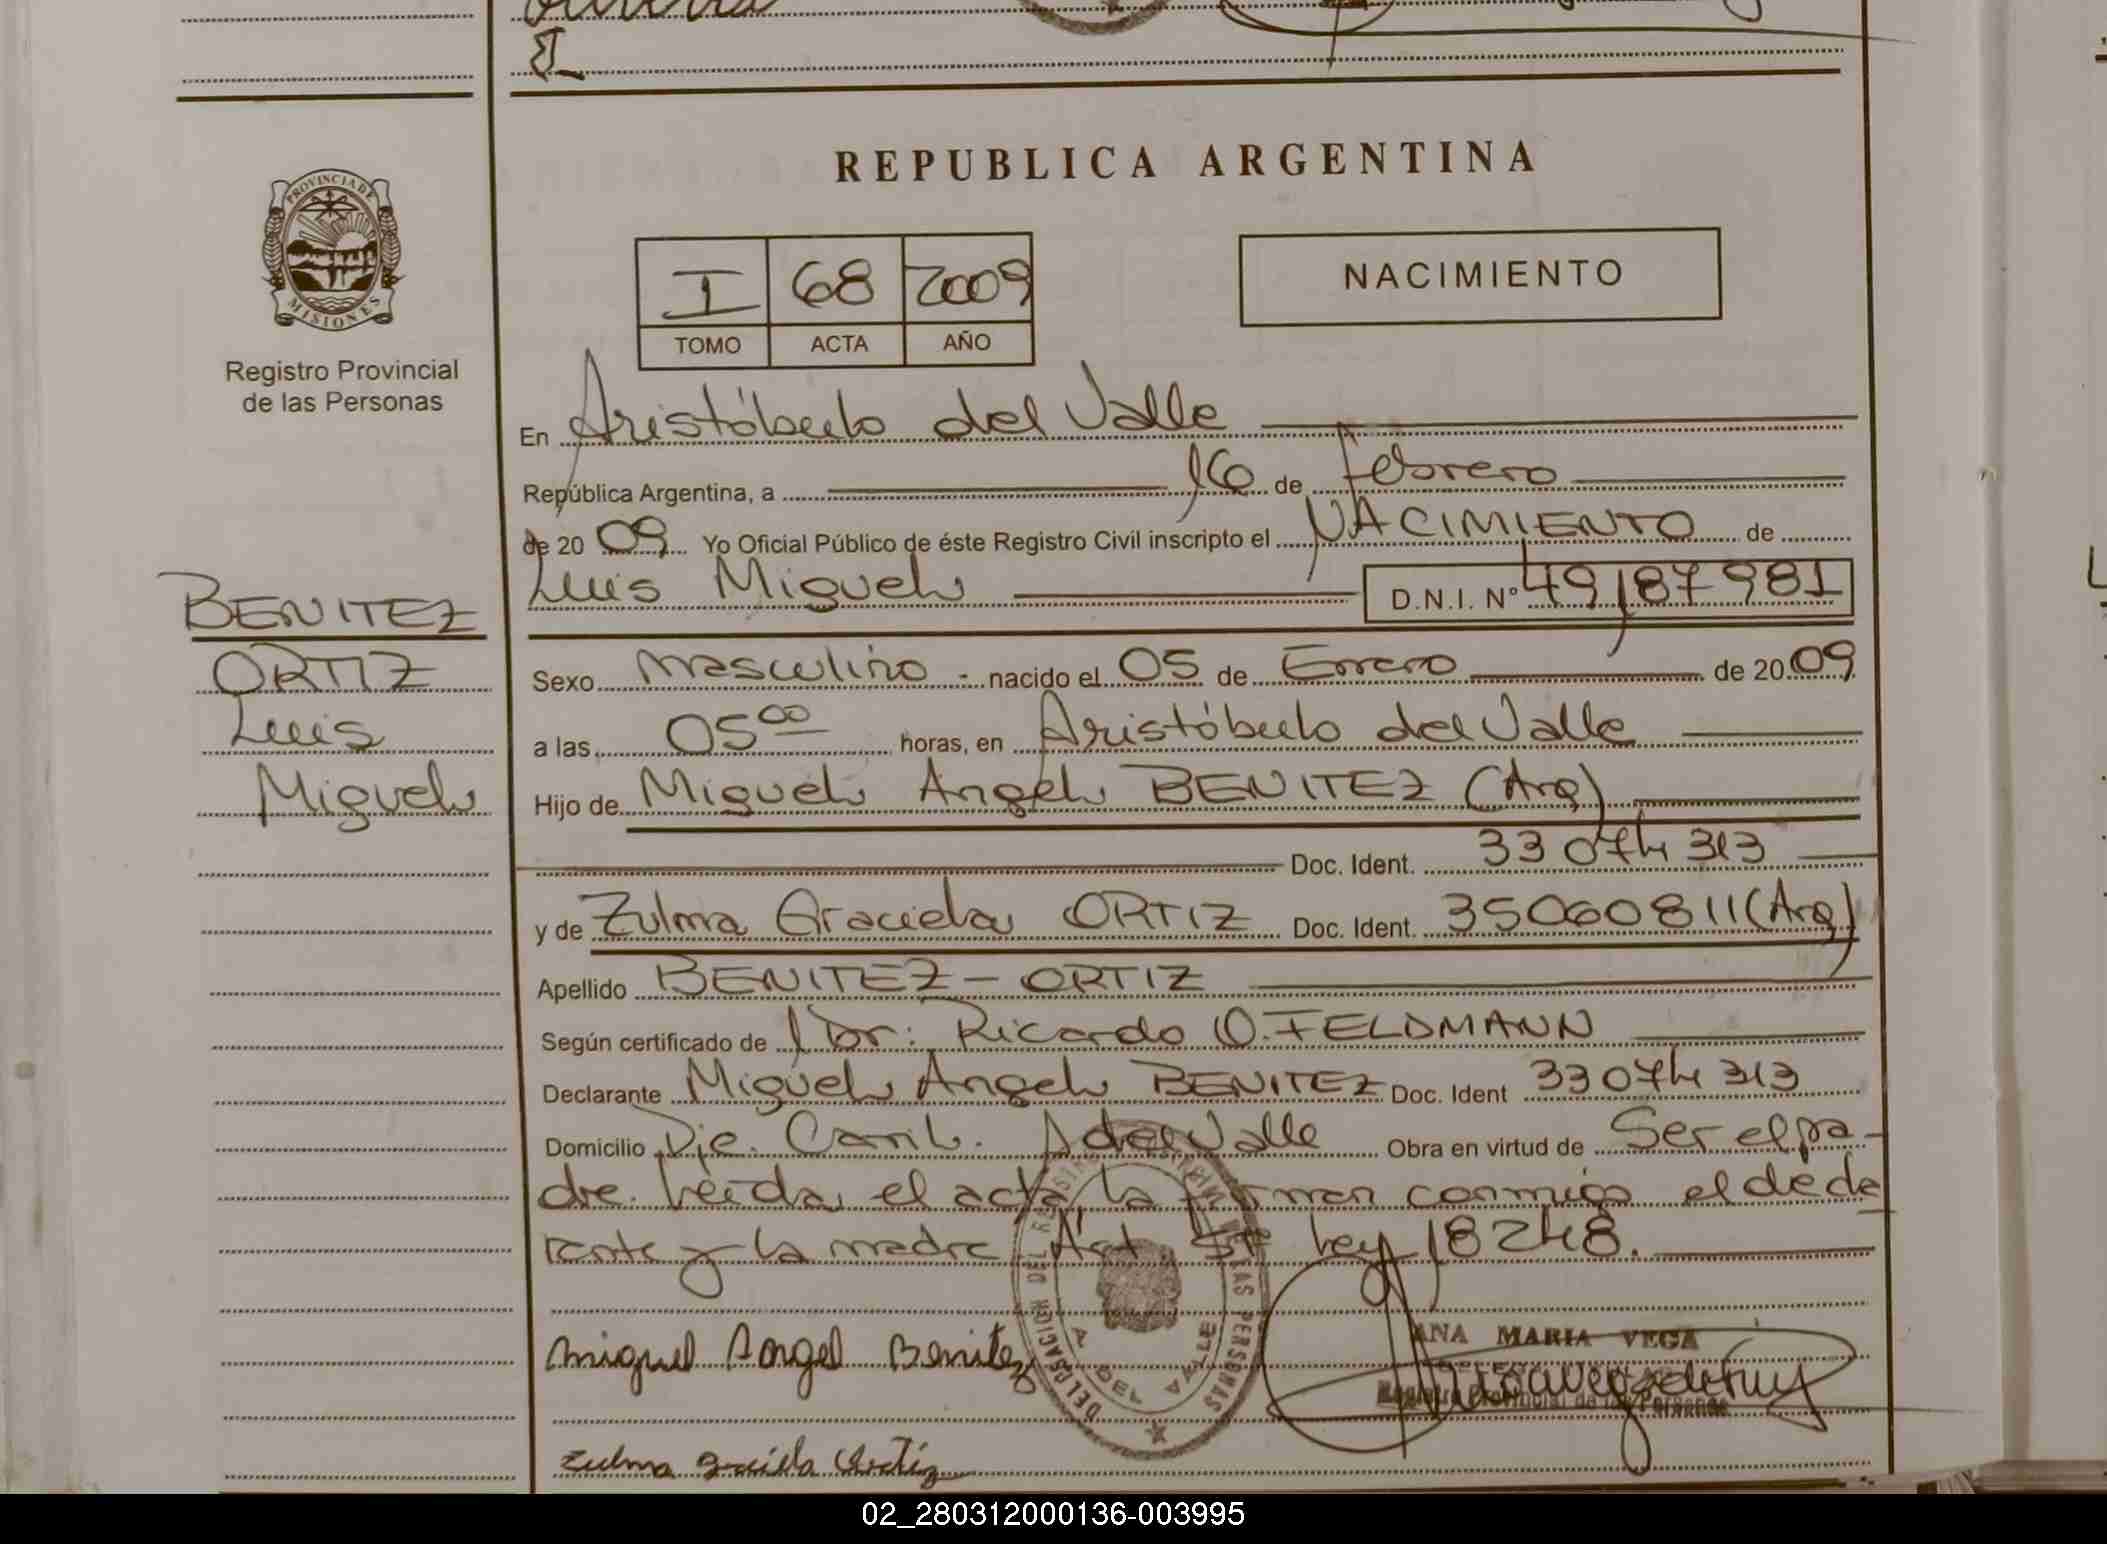 REPUBLICA ARGENTINA
PROVINCIA DE
MISIONES
Registro Provincial
de las Personas
I 68 2009
TOMO ACTA AÑO
NACIMIENTO
En Aristóbulo del Valle
República Argentina, a 16 de Febrero
de 2009 Yo Oficial Público de éste Registro Civil inscripto el NACIMIENTO de
Luis Miguel D.N.I. N° 49187981
BENITEZ
ORTIZ
Luis
Miguel
Sexo masculino - nacido el 05 de Enero de 2009
a las 05 00 horas, en Aristóbulo del Valle
Hijo de Miguel Angel BENITEZ (Arg)
Doc. Ident. 33074313
y de Zulma Graciela ORTIZ Doc. Ident. 35060811 (Arg)
Apellido BENITEZ - ORTIZ
Según certificado de Dr: Ricardo O. FELDMANN
Declarante Miguel Angel BENITEZ Doc. Ident 33074313
Domicilio A del Valle Obra en virtud de Ser el pa-
dre. Leída el acta la firman conmigo el decla
rante y la madre Art. 5° Ley 18248.
DELEGACION DEL REGISTRO PROVINCIAL DE LAS PERSONAS
A. DEL VALLE
Miguel Angel Benitez
ANA MARIA VEGA
Registro Provincial de las Personas
Zulma Graciela Ortiz
02_280312000136-003995